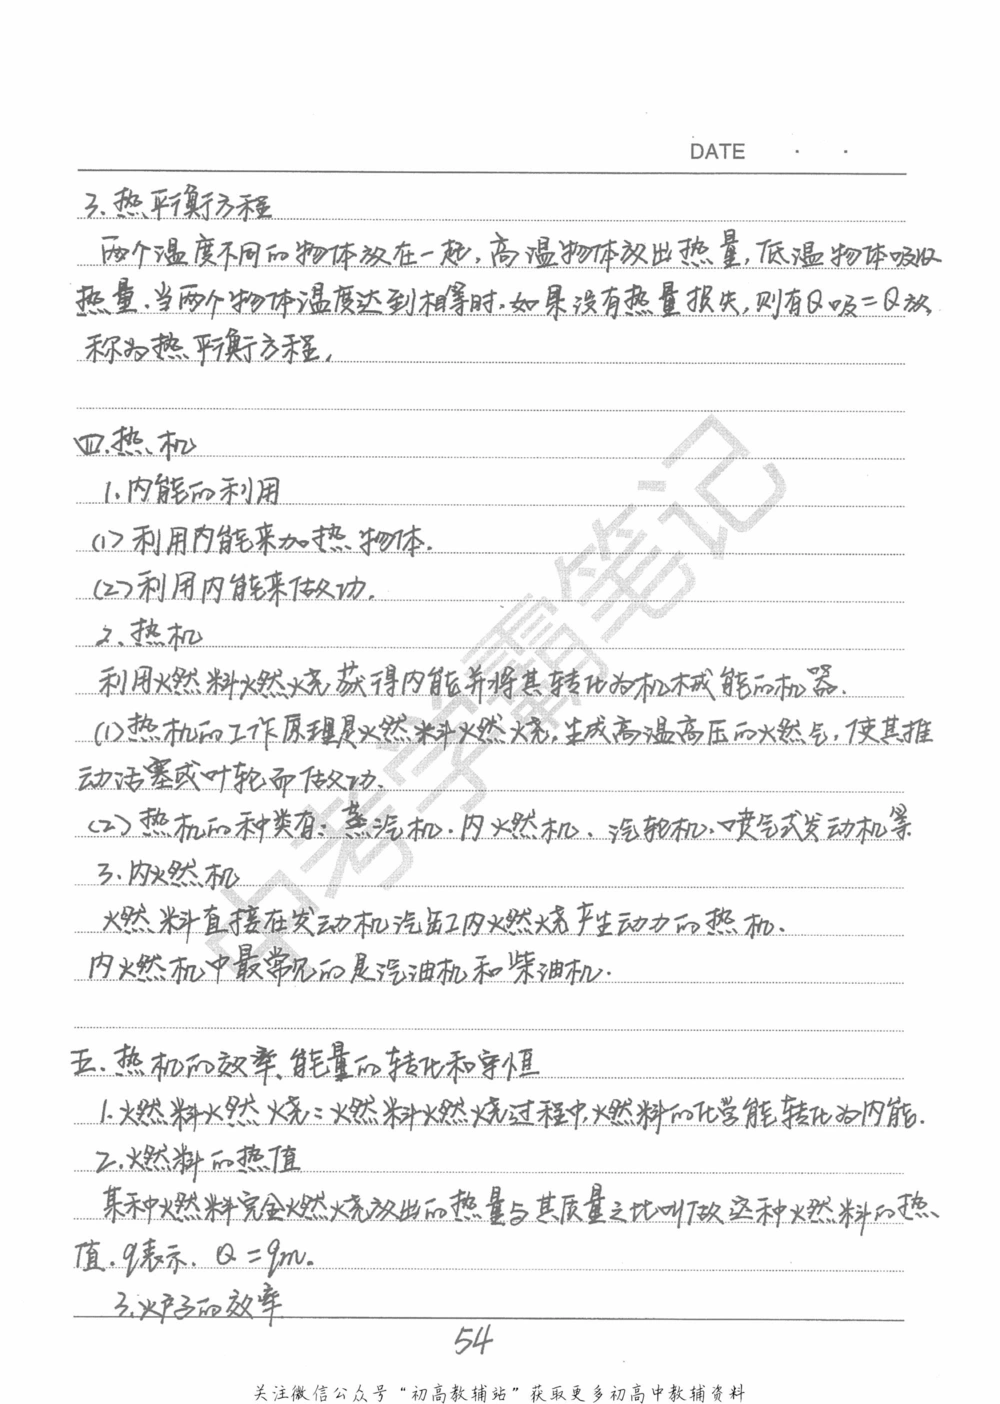 DATE · ·
3、热平衡方程
两个温度不同的物体放在一起,高温物体放出热量,低温物体吸收
热量.当两个物体温度达到相等时.如果没有热量损失,则有Q吸=Q放
称为热平衡方程.
四.热机
1.内能的利用
(1)利用内能来加热物体.
(2)利用内能来做功.
2、热机
利用燃料燃烧获得内能并将其转化为机械能的机器.
(1)热机的工作原理是燃料燃烧,生成高温高压的燃气,使其推
动活塞或叶轮而做功.
(2)热机的种类有:蒸汽机.内燃机、汽轮机.喷气式发动机等
3.内燃机
燃料直接在发动机汽缸内燃烧产生动力的热机.
内燃机中最常见的是汽油机和柴油机.
五.热机的效率、能量的转化和守恒
1.燃料燃烧:燃料燃烧过程中,燃料的化学能转化为内能.
2.燃料的热值
某种燃料完全燃烧放出的热量与其质量之比叫做这种燃料的热
值.q表示.Q=qm。
3.炉子的效率
54
中考学霸笔记
关注微信公众号“初高教辅站”获取更多初高中教辅资料